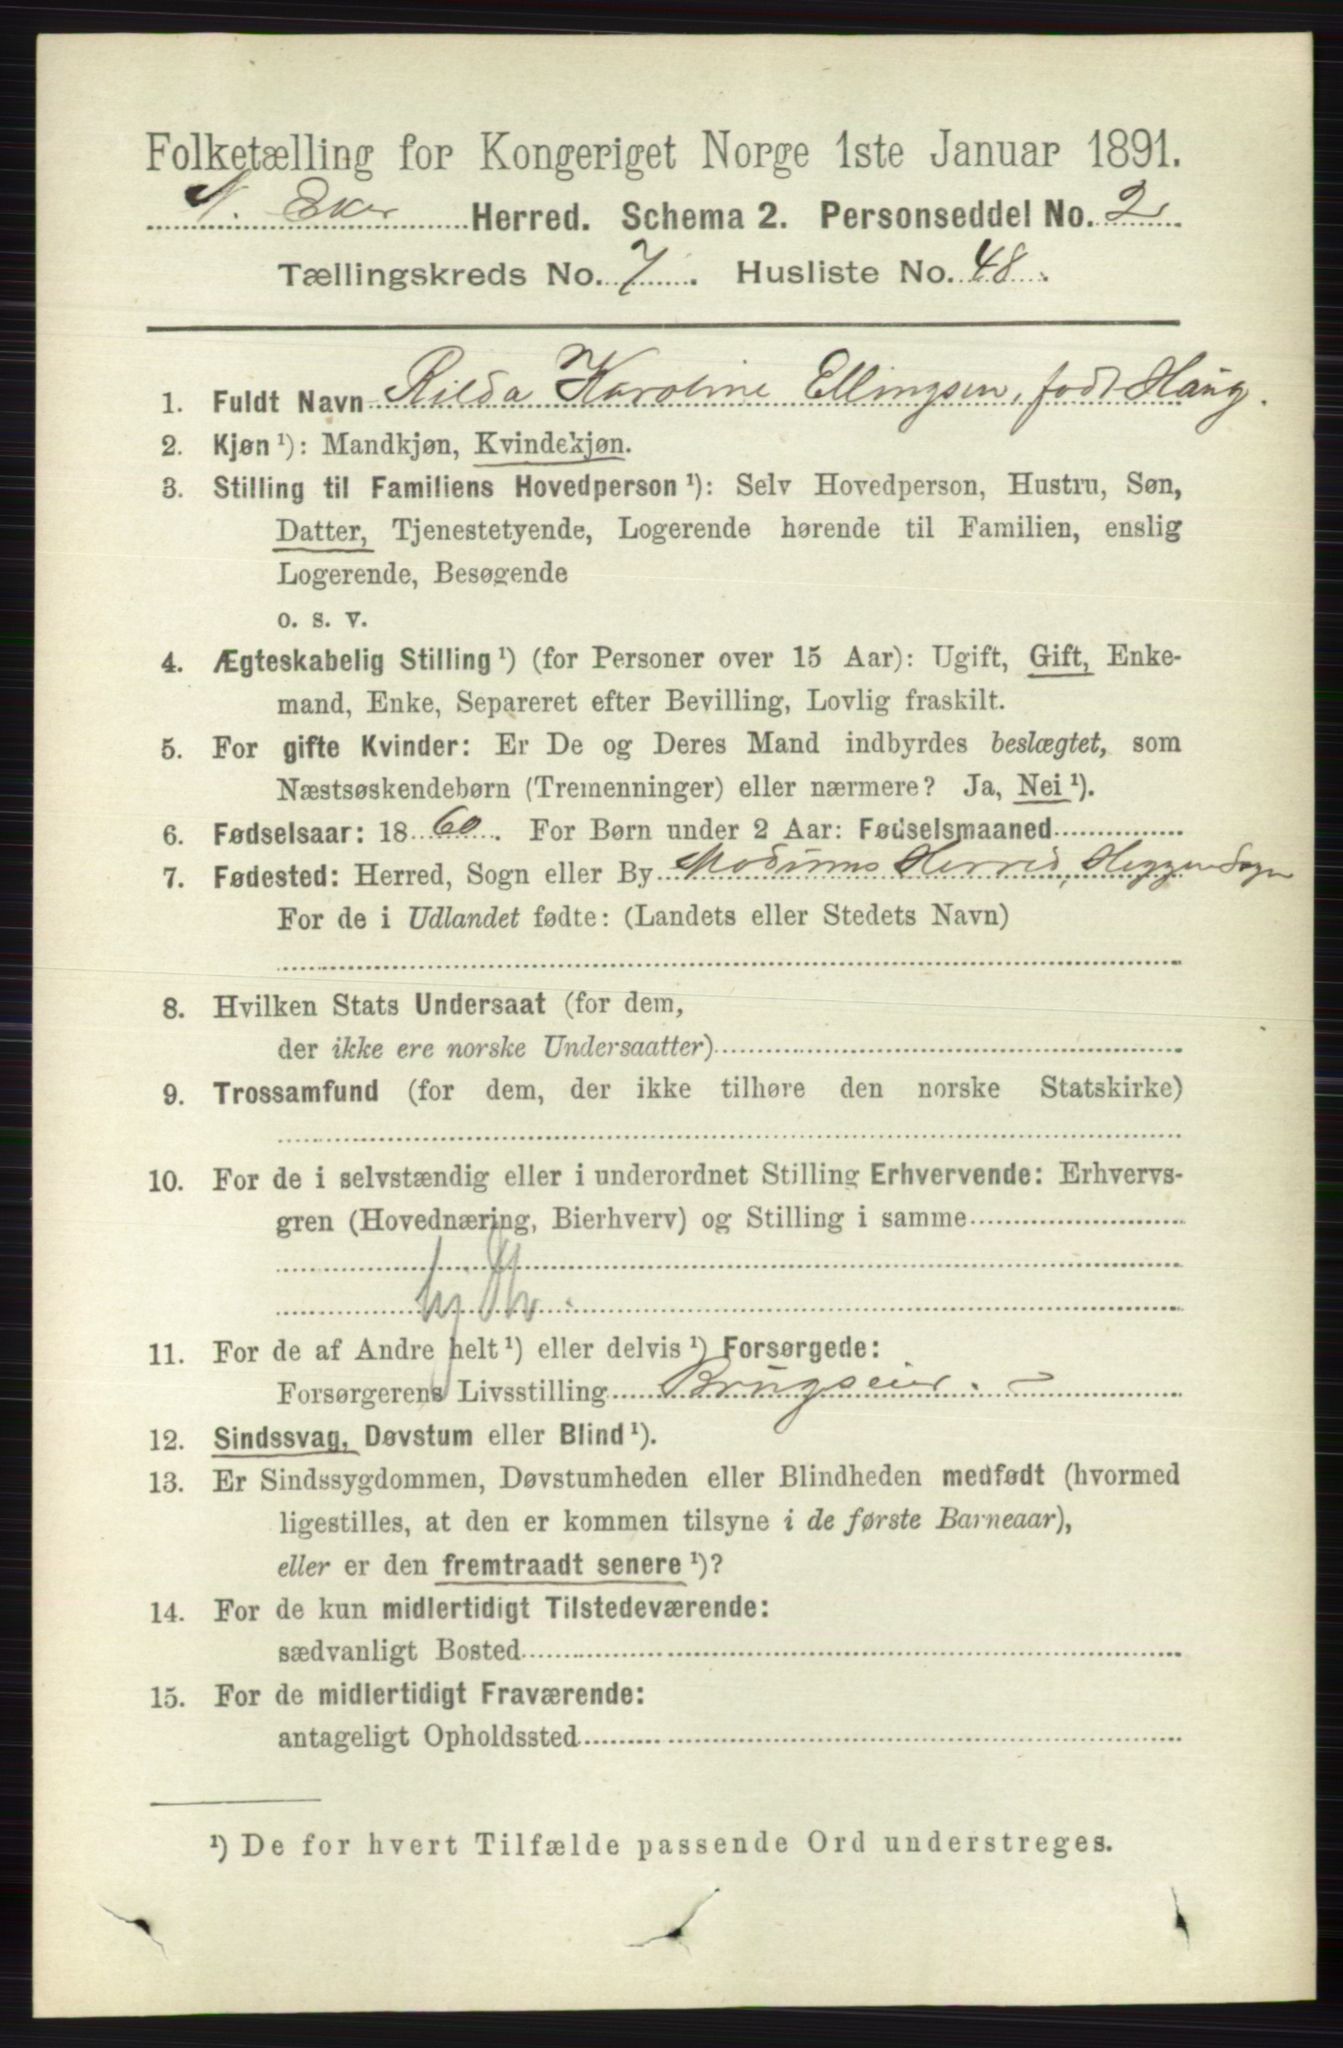 Folketælling for Kongeriget Norge 1ste Januar 1891.
N. Eker Herred. Schema 2. Personseddel No. 2
Tællingskreds No. 7. Husliste No. 48.
1. Fuldt Navn Rilda Karoline Ellingsen, født Haug.
2. Kjøn ¹): Mandkjøn, Kvindekjøn.
3. Stilling til Familiens Hovedperson ¹): Selv Hovedperson, Hustru, Søn,
Datter, Tjenestetyende, Logerende hørende til Familien, enslig
Logerende, Besøgende
o. s. v.
4. Ægteskabelig Stilling ¹) (for Personer over 15 Aar): Ugift, Gift, Enke-
mand, Enke, Separeret efter Bevilling, Lovlig fraskilt.
5. For gifte Kvinder: Er De og Deres Mand indbyrdes beslægtet, som
Næstsøskendebørn (Tremenninger) eller nærmere? Ja, Nei ¹).
6. Fødselsaar: 1860. For Børn under 2 Aar: Fødselsmaaned
7. Fødested: Herred, Sogn eller By Modums Herred, Heggen Sogn
For de i Udlandet fødte: (Landets eller Stedets Navn)
8. Hvilken Stats Undersaat (for dem,
der ikke ere norske Undersaatter)
9. Trossamfund (for dem, der ikke tilhøre den norske Statskirke)
10. For de i selvstændig eller i underordnet Stilling Erhvervende: Erhvervs-
gren (Hovednæring, Bierhverv) og Stilling i samme
11. For de af Andre helt ¹) eller delvis ¹) Forsørgede:
Forsørgerens Livsstilling Brugseier.
12. Sindssvag, Døvstum eller Blind ¹).
13. Er Sindssygdommen, Døvstumheden eller Blindheden medfødt (hvormed
ligestilles, at den er kommen tilsyne i de første Barneaar),
eller er den fremtraadt senere ¹)?
14. For de kun midlertidigt Tilstedeværende:
sædvanligt Bosted
15. For de midlertidigt Fraværende:
antageligt Opholdssted
¹) De for hvert Tilfælde passende Ord understreges.